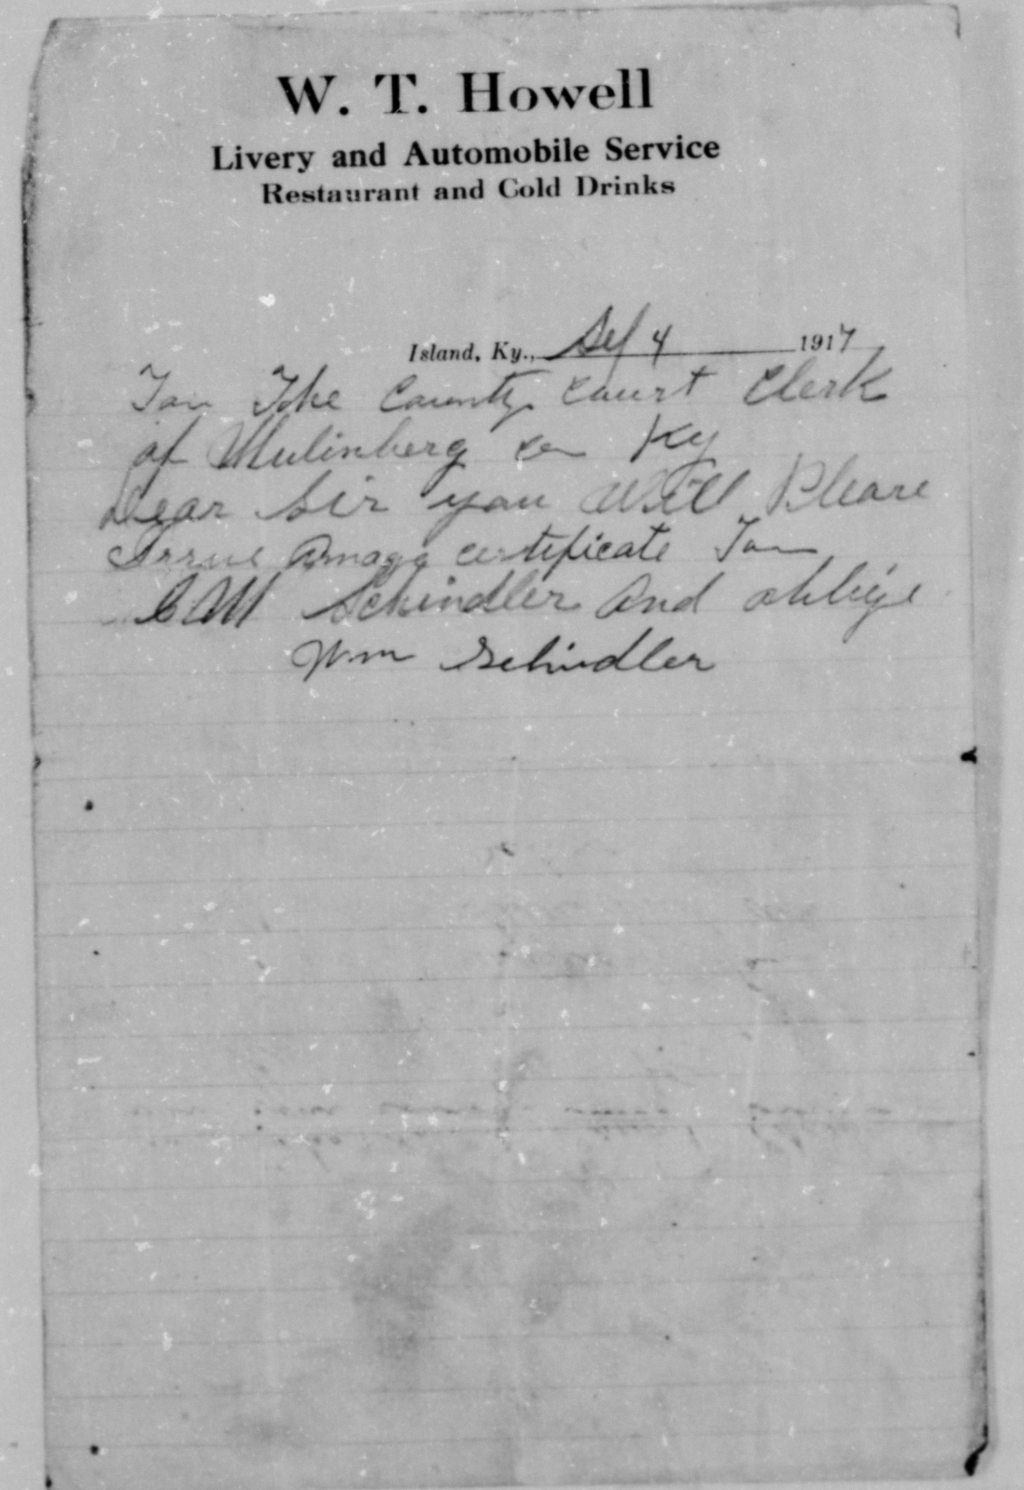 W. T. Howell
Livery and Automobile Service
Restaurant and Cold Drinks
Island, Ky., Sep 4 1917
Too The County Court Clerk
of Mulinberg co Ky
Dear Sir you Will Please
certificate Too
C M Schindler And oblige
Wm Schindler